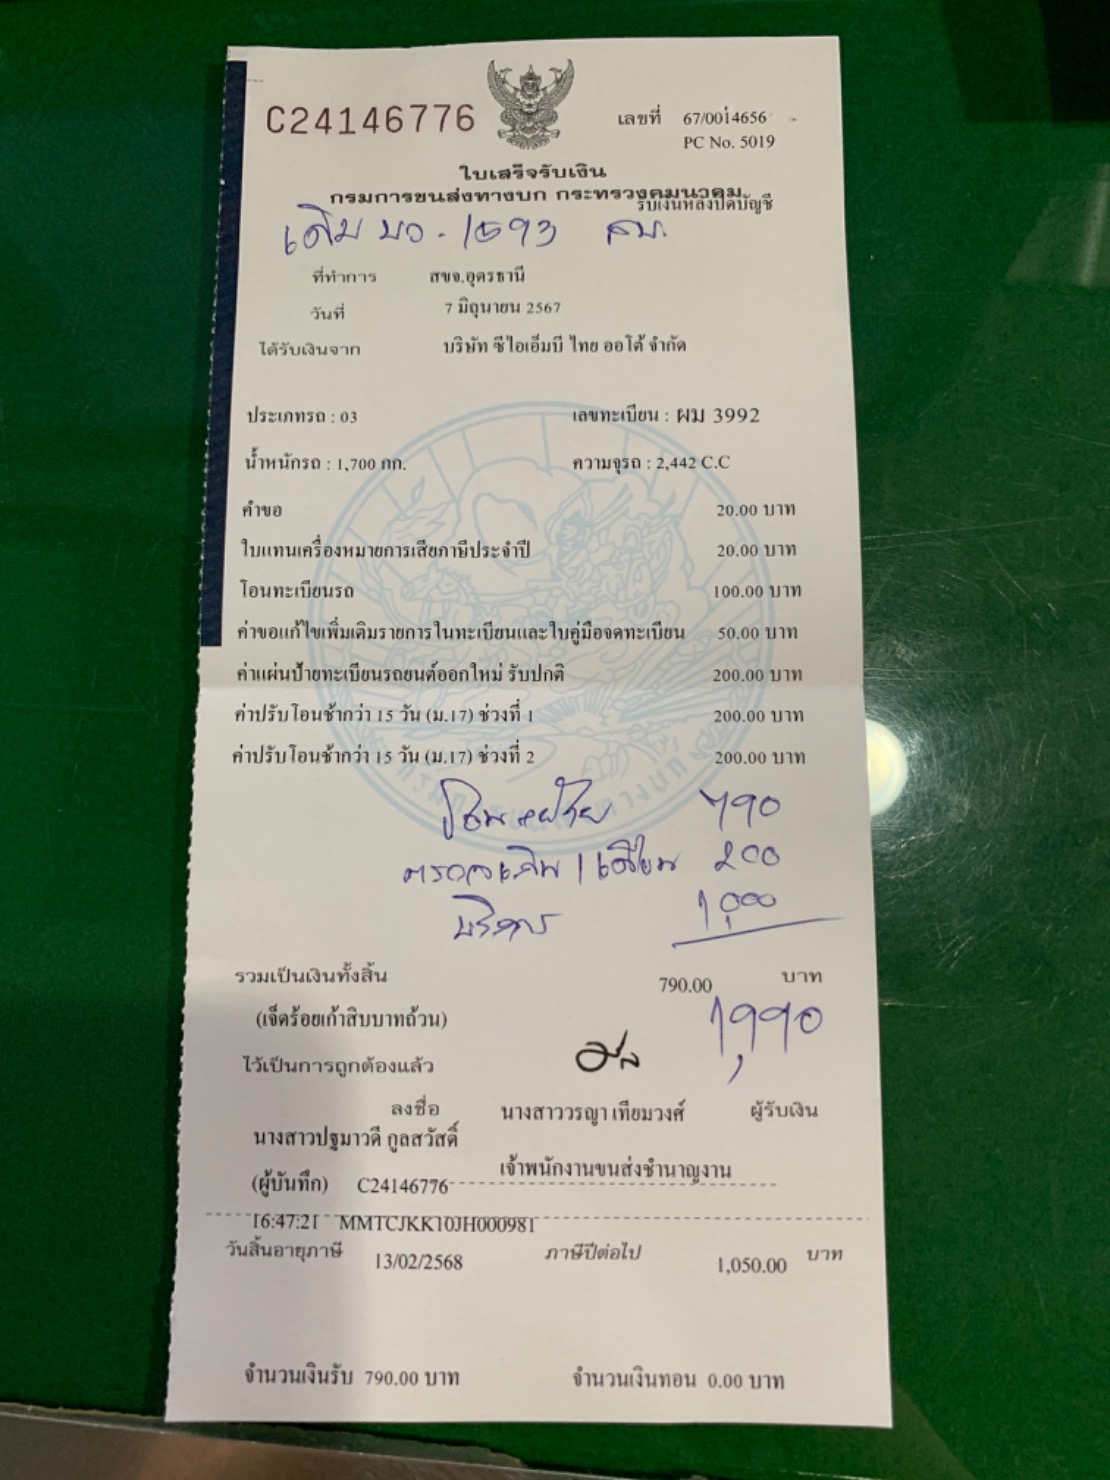 C24146776
เลขที่ 67/0014656
PC No. 5019
ใบเสร็จรับเงิน
กรมการขนส่งทางบก กระทรวงคมนาคม
รับเงินหลังปิดบัญชี
เดิม บว - 1693 สบ.
ที่ทำการ สขจ.อุดรธานี
วันที่ 7 มิถุนายน 2567
ได้รับเงินจาก บริษัท ซีไอเอ็มบี ไทย ออโต้ จำกัด
ประเภทรถ : 03 เลขทะเบียน : ผม 3992
น้ำหนักรถ : 1,700 กก. ความจุรถ : 2,442 C.C
คำขอ 20.00 บาท
ใบแทนเครื่องหมายการเสียภาษีประจำปี 20.00 บาท
โอนทะเบียนรถ 100.00 บาท
ค่าขอแก้ไขเพิ่มเติมรายการในทะเบียนและใบคู่มือจดทะเบียน 50.00 บาท
ค่าแผ่นป้ายทะเบียนรถยนต์ออกใหม่ รับปกติ 200.00 บาท
ค่าปรับโอนช้ากว่า 15 วัน (ม.17) ช่วงที่ 1 200.00 บาท
ค่าปรับโอนช้ากว่า 15 วัน (ม.17) ช่วงที่ 2 200.00 บาท
790
200
บริการ 1,000
รวมเป็นเงินทั้งสิ้น 790.00 บาท
(เจ็ดร้อยเก้าสิบบาทถ้วน) 1,990
ไว้เป็นการถูกต้องแล้ว
ลงชื่อ นางสาววรญา เทียมวงศ์ ผู้รับเงิน
นางสาวปฐมาวดี กูลสวัสดิ์
เจ้าพนักงานขนส่งชำนาญงาน
(ผู้บันทึก) C24146776
16:47:21 MMTCJKK10JH000981
วันสิ้นอายุภาษี 13/02/2568 ภาษีปีต่อไป 1,050.00 บาท
จำนวนเงินรับ 790.00 บาท จำนวนเงินทอน 0.00 บาท